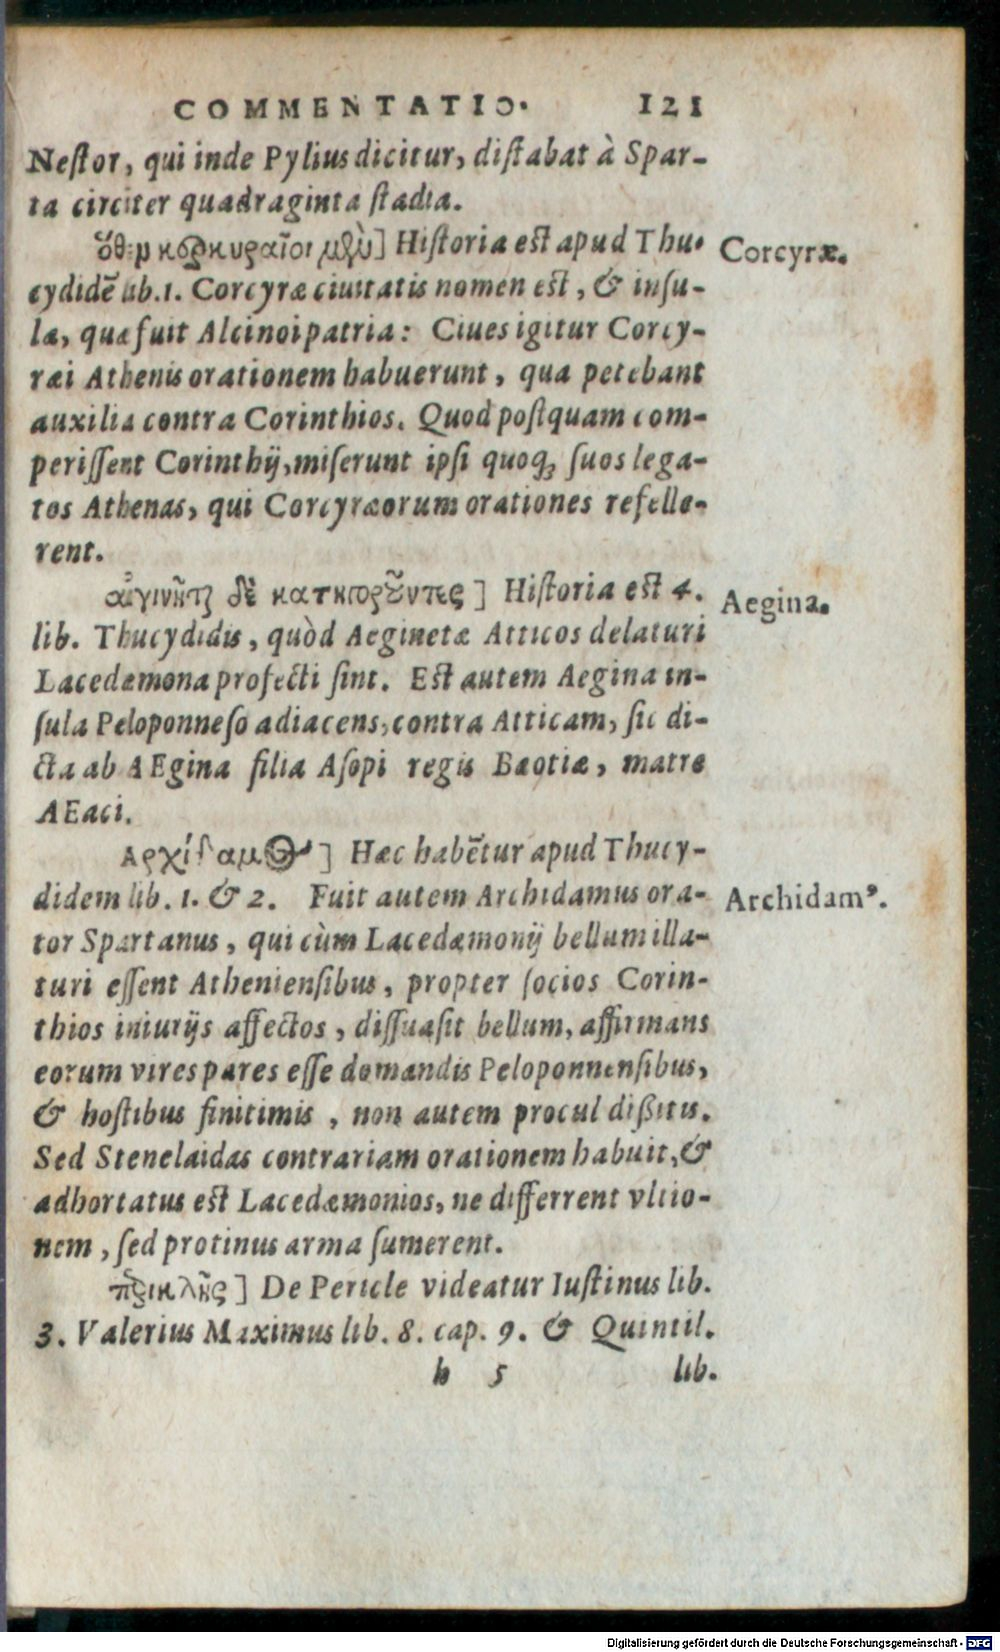 COMMENTATIO. 121
Nestor, qui inde Pylius dicitur, distabat à Spar-
ta circiter quadraginta stadia.
κερκυραῖοι] Historia est apud Thu-
Corcyræ.
cydidē lib. 1. Corcyræ ciuitatis nomen est, & insu-
læ, quæ fuit Alcinoi patria: Ciues igitur Corcy-
ræi Athenis orationem habuerunt, qua petebant
auxilia contra Corinthios. Quod postquam com-
perissent Corinthij, miserunt ipsi quoq; suos lega-
tos Athenas, qui Corcyræorum orationes refelle-
rent.
αἰγινῆται δὲ κατηγοροῦντες] Historia est 4.
Aegina.
lib. Thucydidis, quòd Aeginetæ Atticos delaturi
Lacedæmona profecti sint. Est autem Aegina in-
sula Peloponneso adiacens, contra Atticam, sic di-
cta ab AEgina filia Asopi regis Bæotiæ, matre
AEaci.
Αρχίδαμος] Hæc habētur apud Thucy-
didem lib. 1. & 2. Fuit autem Archidamus ora-
Archidamꝰ.
tor Spartanus, qui cùm Lacedæmonij bellum illa-
turi essent Atheniensibus, propter socios Corin-
thios iniurijs affectos, dissuasit bellum, affirmans
eorum vires pares esse domandis Peloponnensibus,
& hostibus finitimis, non autem procul dißitis.
Sed Stenelaidas contrariam orationem habuit, &
adhortatus est Lacedæmonios, ne differrent vltio-
nem, sed protinus arma sumerent.
περικλῆς] De Pericle videatur Iustinus lib.
3. Valerius Maximus lib. 8. cap. 9. & Quintil.
h 5 lib.
Digitalisierung gefördert durch die Deutsche Forschungsgemeinschaft - DFG